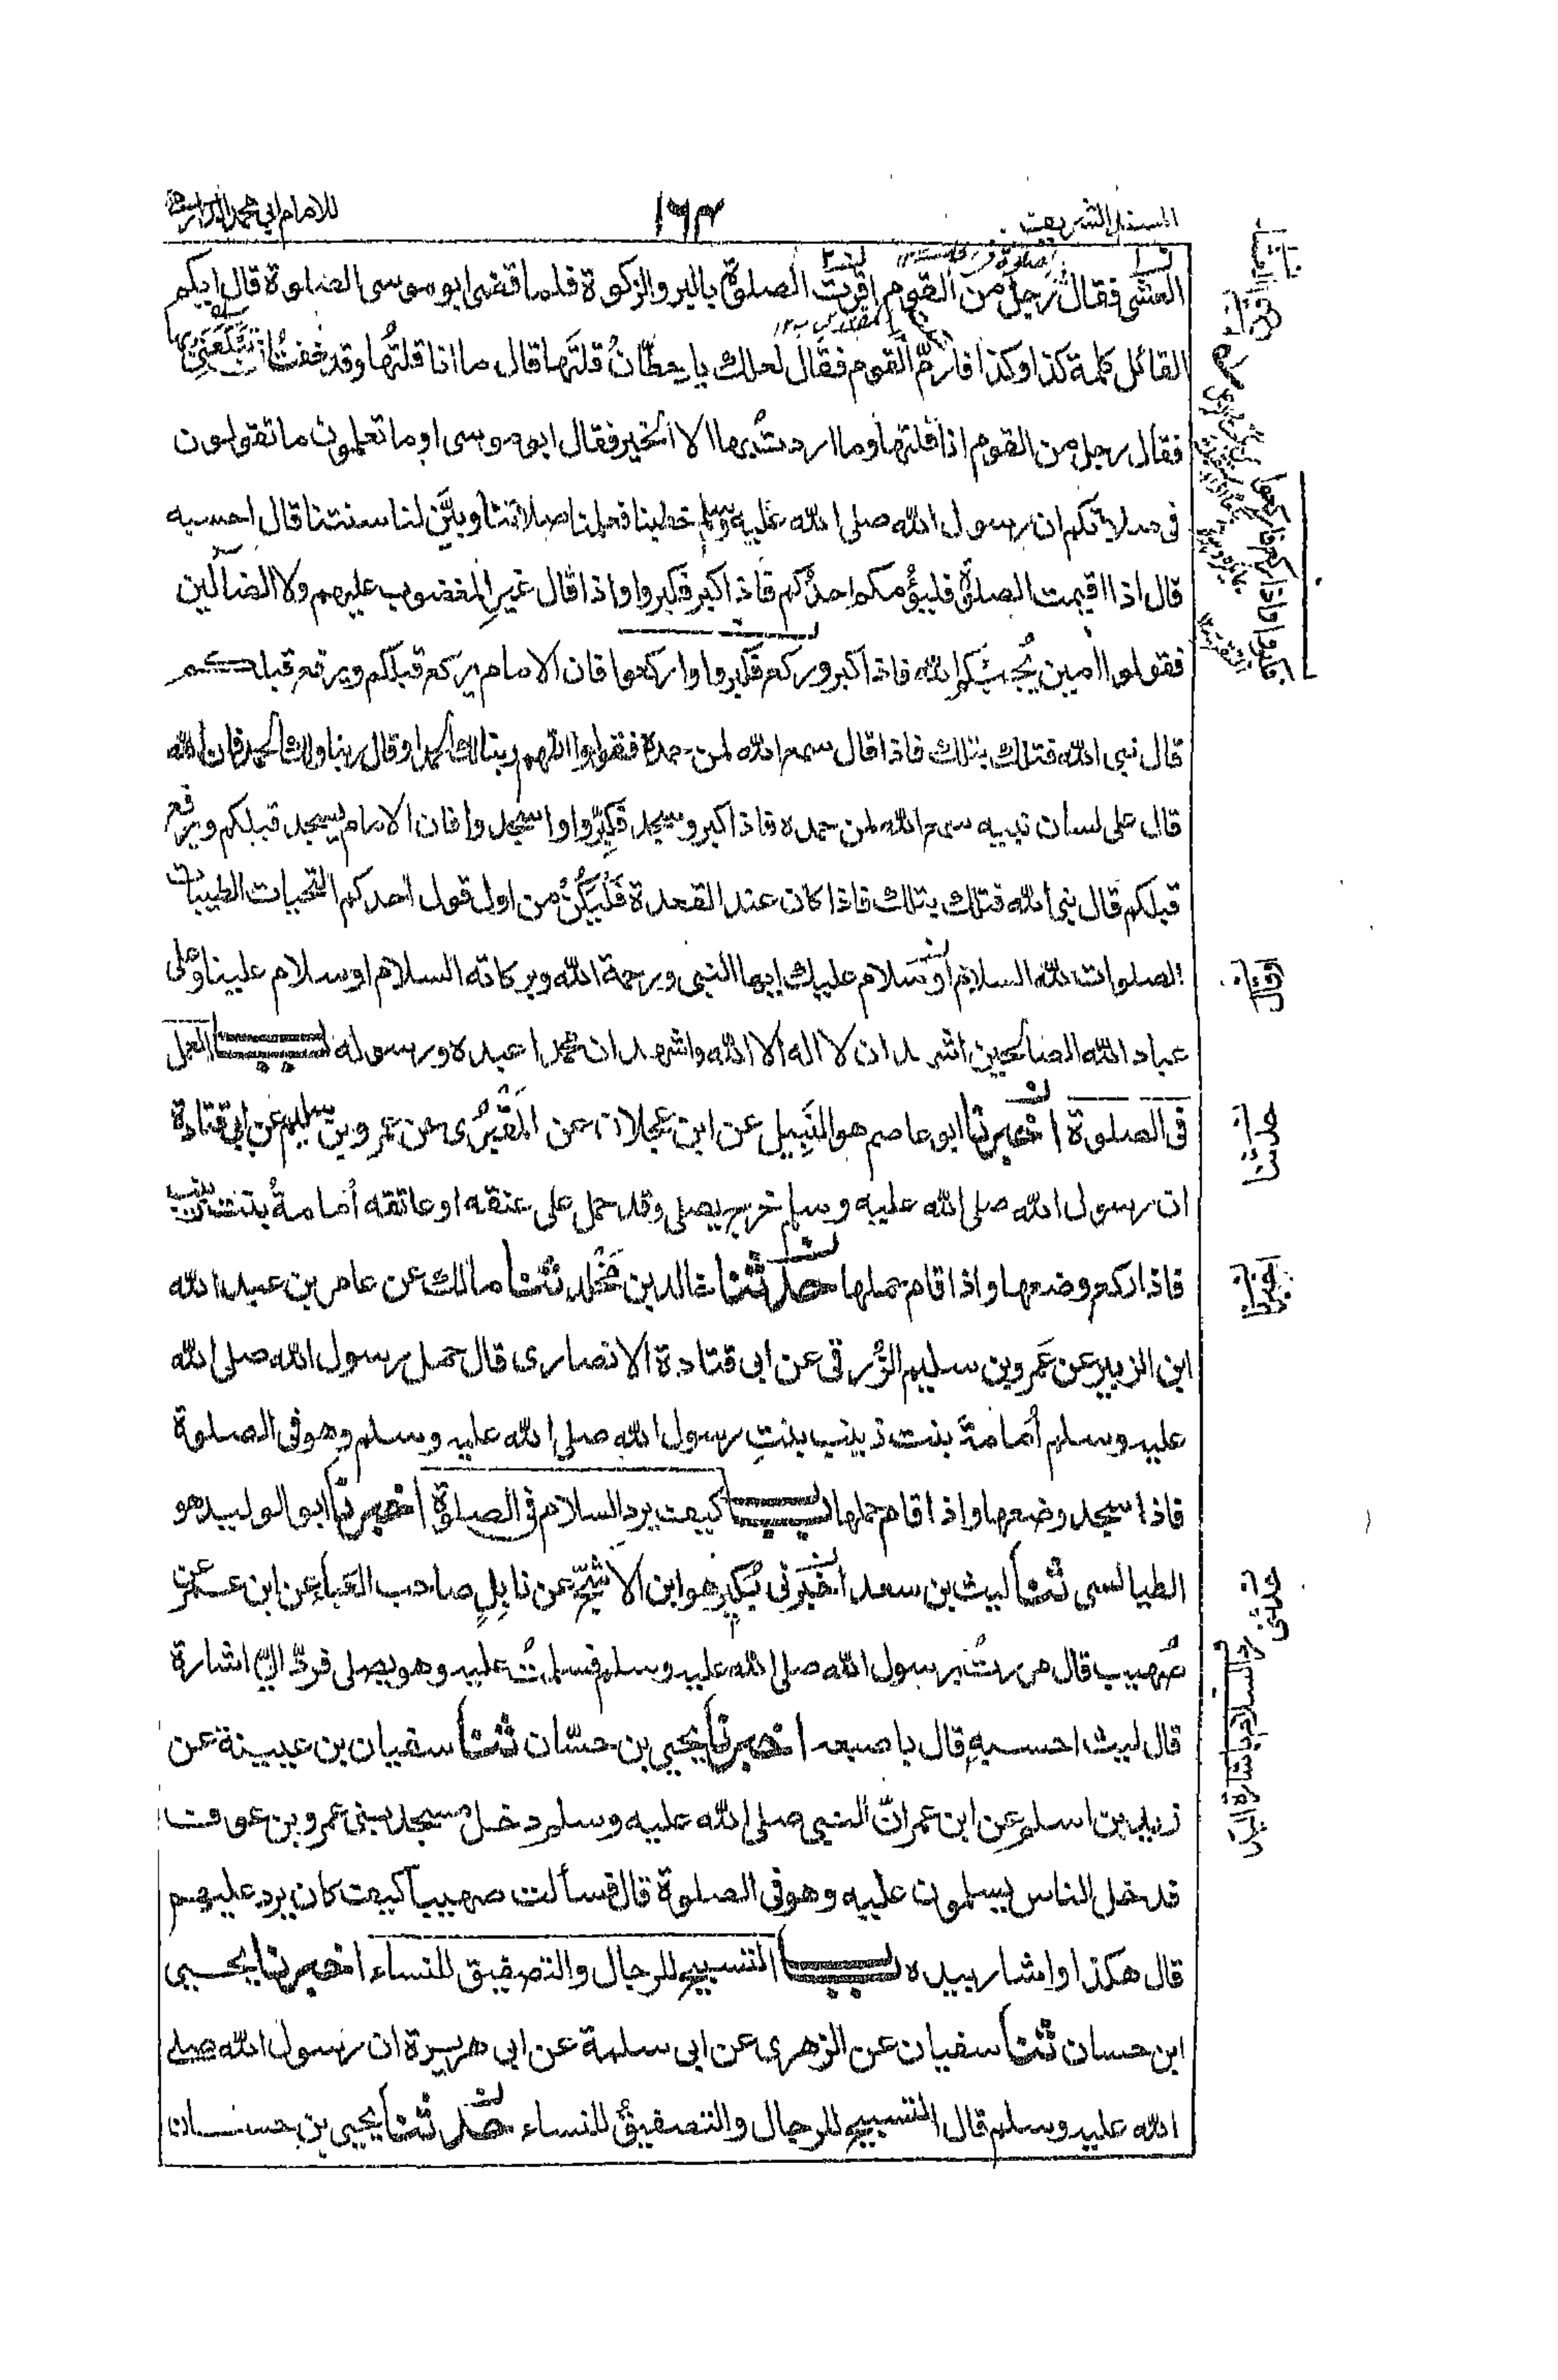 المسند الشريف
١٦٣
للامام ابي محمد الدارمي
العشى فقال رجل من القوم اقرت الصلوة بالبر والزكوة فلما قضى ابو موسى الصلوة قال ايكم
القائل كلمة كذا وكذا فارمّ القوم فقال لعلك يا حطّانُ قلتَها قال ما انا قلتُها وقد خفتُ ان تَبْكَعَنِي بها
فقال رجل من القوم انا قلتها وما اردتُ بها الا الخير فقال ابو موسى اوما تعلمون ما تقولون
فى صلاتكم ان رسول الله صلى الله عليه وسلم خطبنا فعلمنا صلاتنا وبيَّن لنا سنتنا قال احسبه
قال اذا اقيمت الصلوة فليؤمكم احدُكم فاذا كبر فكبروا واذا قال غيرِ المغضوب عليهم ولا الضالّين
فقولوا اٰمين يُجبْكم الله فاذا كبر وركع فكبروا واركعوا فان الامام يركع قبلكم ويرفع قبلكم
قال نبى الله فتلك بتلك فاذا قال سمع الله لمن حمده فقولوا اللهم ربنا لك الحمد او قال ربنا ولك الحمد فان الله
قال على لسان نبيه سمع الله لمن حمده فاذا كبر وسجد فكبِّروا واسجدوا فان الامام يسجد قبلكم ويرفع
قبلكم قال نبى الله فتلك بتلك فاذا كان عند القعدة فَلْيَكُنْ من اول قول احدكم التحيات الطيبات
الصلوات لله السلام او سَلام عليك ايها النبى ورحمة الله وبركاته السلام او سلام علينا وعلى
عباد الله الصالحين اشهد ان لا اله الا الله واشهد ان محمدا عبده ورسوله باب العمل
فى الصلوة اخبرنا ابو عاصم هو النَبِيل عن ابن عجلان عن المَقْبُرى عن عمرو بن سليم عن ابى قتادة
ان رسول الله صلى الله عليه وسلم خرج يصلى وقد حمل على عنقه او عاتقه أمامةُ بنت زينب
فاذا ركع وضعها واذا قام حملها حدثنا خالد بن مَخْلَد ثنا مالك عن عامر بن عبد الله
ابن الزبير عن عَمرو بن سليم الزُّرقى عن ابى قتادة الانصارى قال حمل رسول الله صلى الله
عليه وسلم أمامةَ بنت زينب بنتِ رسول الله صلى الله عليه وسلم وهو فى الصلوة
فاذا سجد وضعها واذا قام حملها باب كيف يرد السلام فى الصلوة اخبرنا ابو الوليد هو
الطيالسى ثنا ليث بن سعد اخبرنى بُكير هو ابن الاشجّ عن نابِلٍ صاحب العَباء عن ابن عمر عن
صُهيب قال مررتُ برسول الله صلى الله عليه وسلم فسلمتُ عليه وهو يصلى فردّ الىّ اشارة
قال ليث احسبه قال باصبعه اخبرنا يحيى بن حسّان ثنا سفيان بن عيينة عن
زيد بن اسلم عن ابن عمر انّ النبى صلى الله عليه وسلم دخل مسجد بنى عمرو بن عوف
فدخل الناس يسلمون عليه وهو فى الصلوة قال فسألت صهيباً كيف كان يرد عليهم
قال هكذا واشار بيده باب التسبيح للرجال والتصفيق للنساء اخبرنا يحيى
ابن حسان ثنا سفيان عن الزهرى عن ابى سلمة عن ابى هريرة ان رسول الله صلى
الله عليه وسلم قال التسبيح للرجال والتصفيقُ للنساء حدثنا يحيى بن حسان
فكبروا فاذا ركع فاركعوا
او قال
حدثنا
اخبرنا
حدثنى
رد السلام باشارة اليد